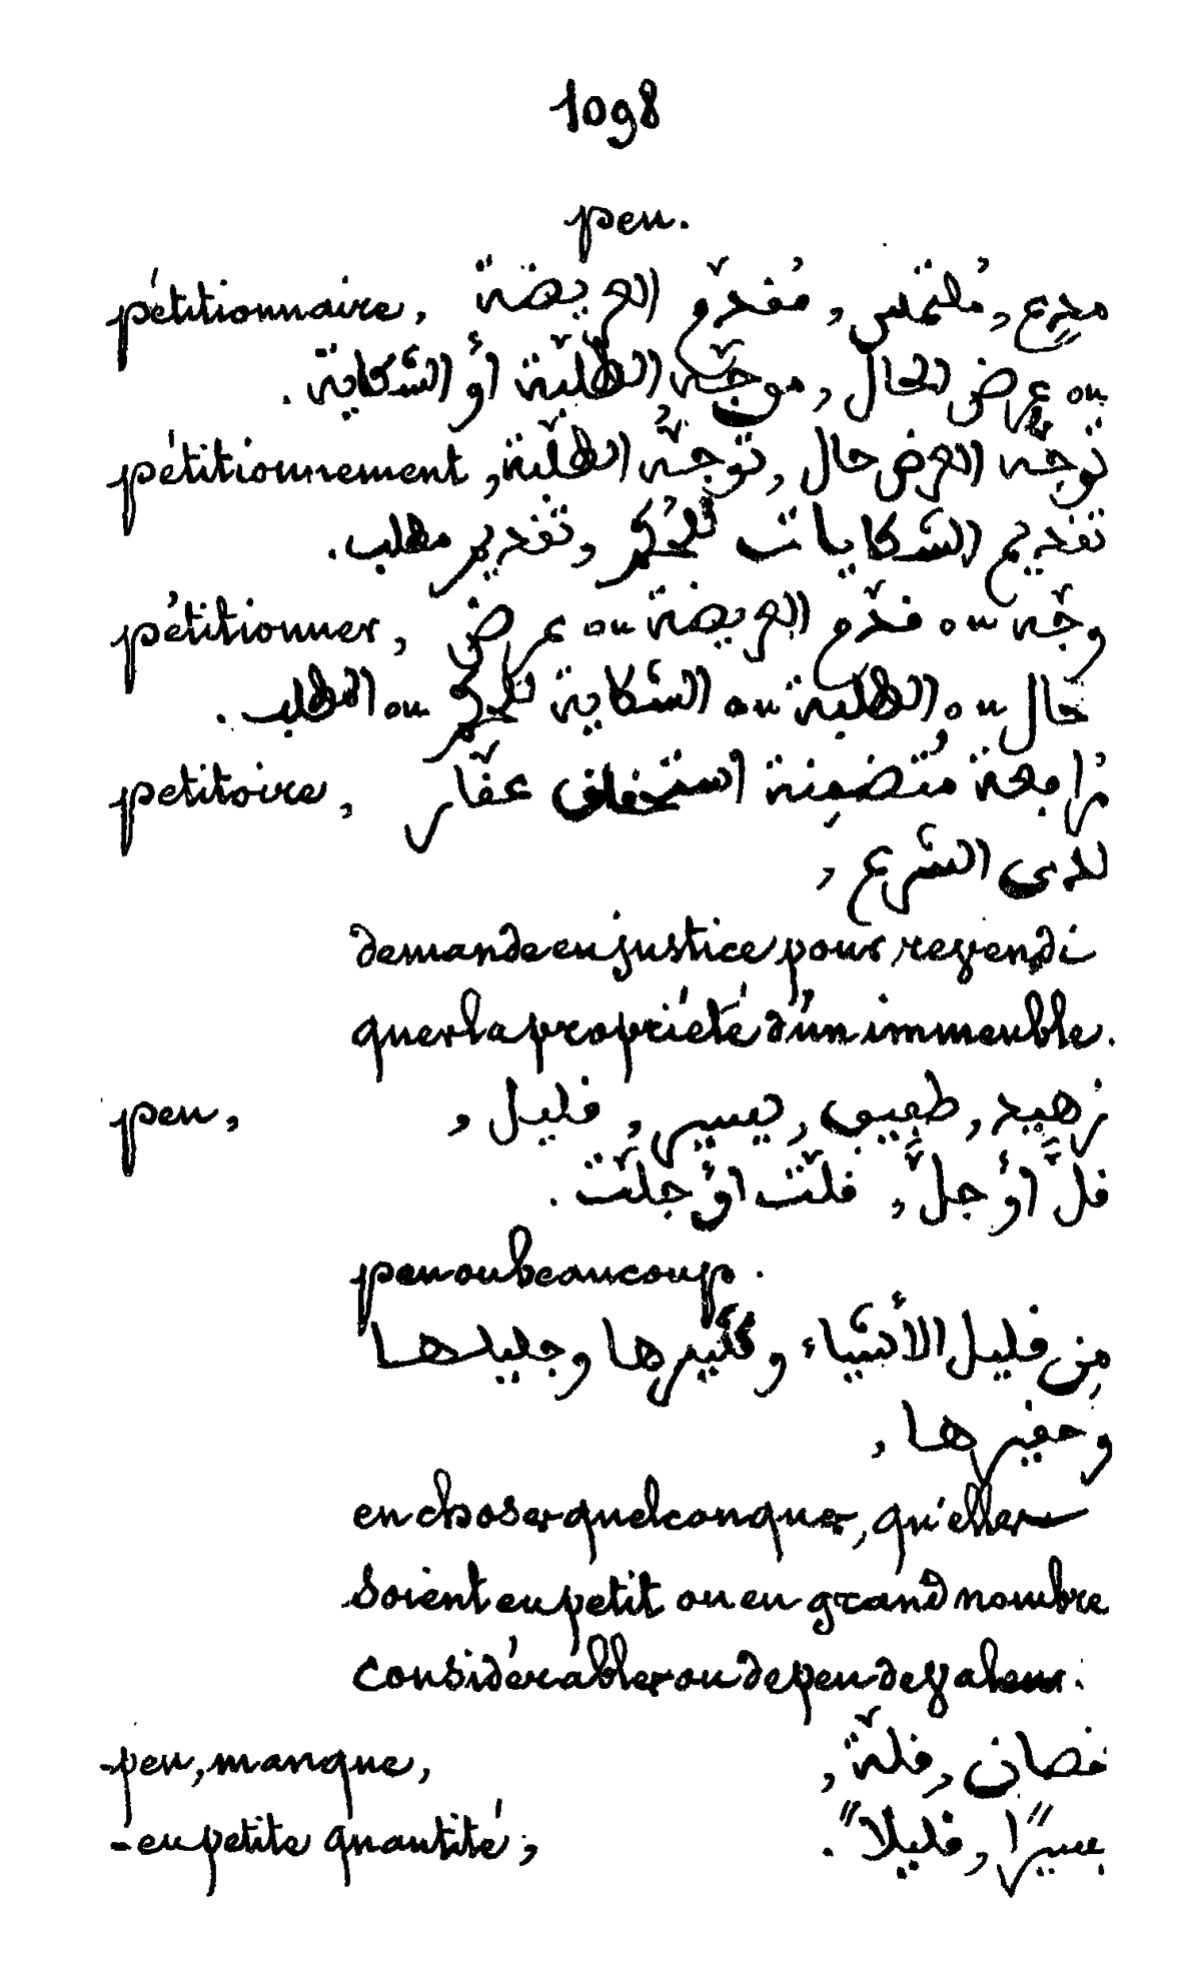 1098
peu.
pétitionnaire, مدع, مُلتمس, مُقدّم العريضة
ou عرض الحال, موجّه الطلبة أو الشكاية.
pétitionnement, توجّه العرض حال, توجّه الطلبة
تقديم الشكايات للحُكم وتقديم مطلب.
pétitionner, وجّه ou قدّم العريضة ou عرض
حال ou الطلبة ou الشكاية للحكم ou المطلب.
petitoire, مُتضمنة عقّار
لدى الشرع,
demande en justice pour revendi
quer la propriété d'un immeuble.
peu, زهيد, طفيف, يسير, قليل,
قلَّ أوْ جلَّ, قلّت اوْ جلّت.
peu ou beaucoup.
مِن قليل الأشياء وكثيرها وجليلها
وحقيرها,
en choses quelconques, qu'elles
soient en petit ou en grand nombre
considérables ou de peu de valeur.
-peu, manque, قلّة,
-en petite quantité, يسيرًا, قليلاً.